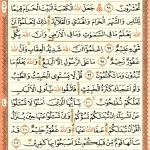 تُحْشَرُونَ ۝ جَعَلَ اللَّهُ الْكَعْبَةَ الْبَيْتَ الْحَرَامَ قِيَامًا
لِلنَّاسِ وَالشَّهْرَ الْحَرَامَ وَالْهَدْيَ وَالْقَلَائِدَ ذَلِكَ لِتَعْلَمُوا أَنَّ اللَّهَ
يَعْلَمُ مَا فِي السَّمَاوَاتِ وَمَا فِي الْأَرْضِ وَأَنَّ اللَّهَ بِكُلِّ شَيْءٍ
عَلِيمٌ ۝ اعْلَمُوا أَنَّ اللَّهَ شَدِيدُ الْعِقَابِ وَأَنَّ اللَّهَ
غَفُورٌ رَحِيمٌ ۝ مَا عَلَى الرَّسُولِ إِلَّا الْبَلَاغُ وَاللَّهُ يَعْلَمُ مَا
تُبْدُونَ وَمَا تَكْتُمُونَ ۝ قُلْ لَا يَسْتَوِي الْخَبِيثُ وَالطَّيِّبُ
وَلَوْ أَعْجَبَكَ كَثْرَةُ الْخَبِيثِ فَاتَّقُوا اللَّهَ يَا أُولِي الْأَلْبَابِ
لَعَلَّكُمْ تُفْلِحُونَ ۝ يَا أَيُّهَا الَّذِينَ آمَنُوا لَا تَسْأَلُوا عَنْ
أَشْيَاءَ إِنْ تُبْدَ لَكُمْ تَسُؤْكُمْ وَإِنْ تَسْأَلُوا عَنْهَا حِينَ يُنَزَّلُ
الْقُرْآنُ تُبْدَ لَكُمْ عَفَا اللَّهُ عَنْهَا وَاللَّهُ غَفُورٌ حَلِيمٌ